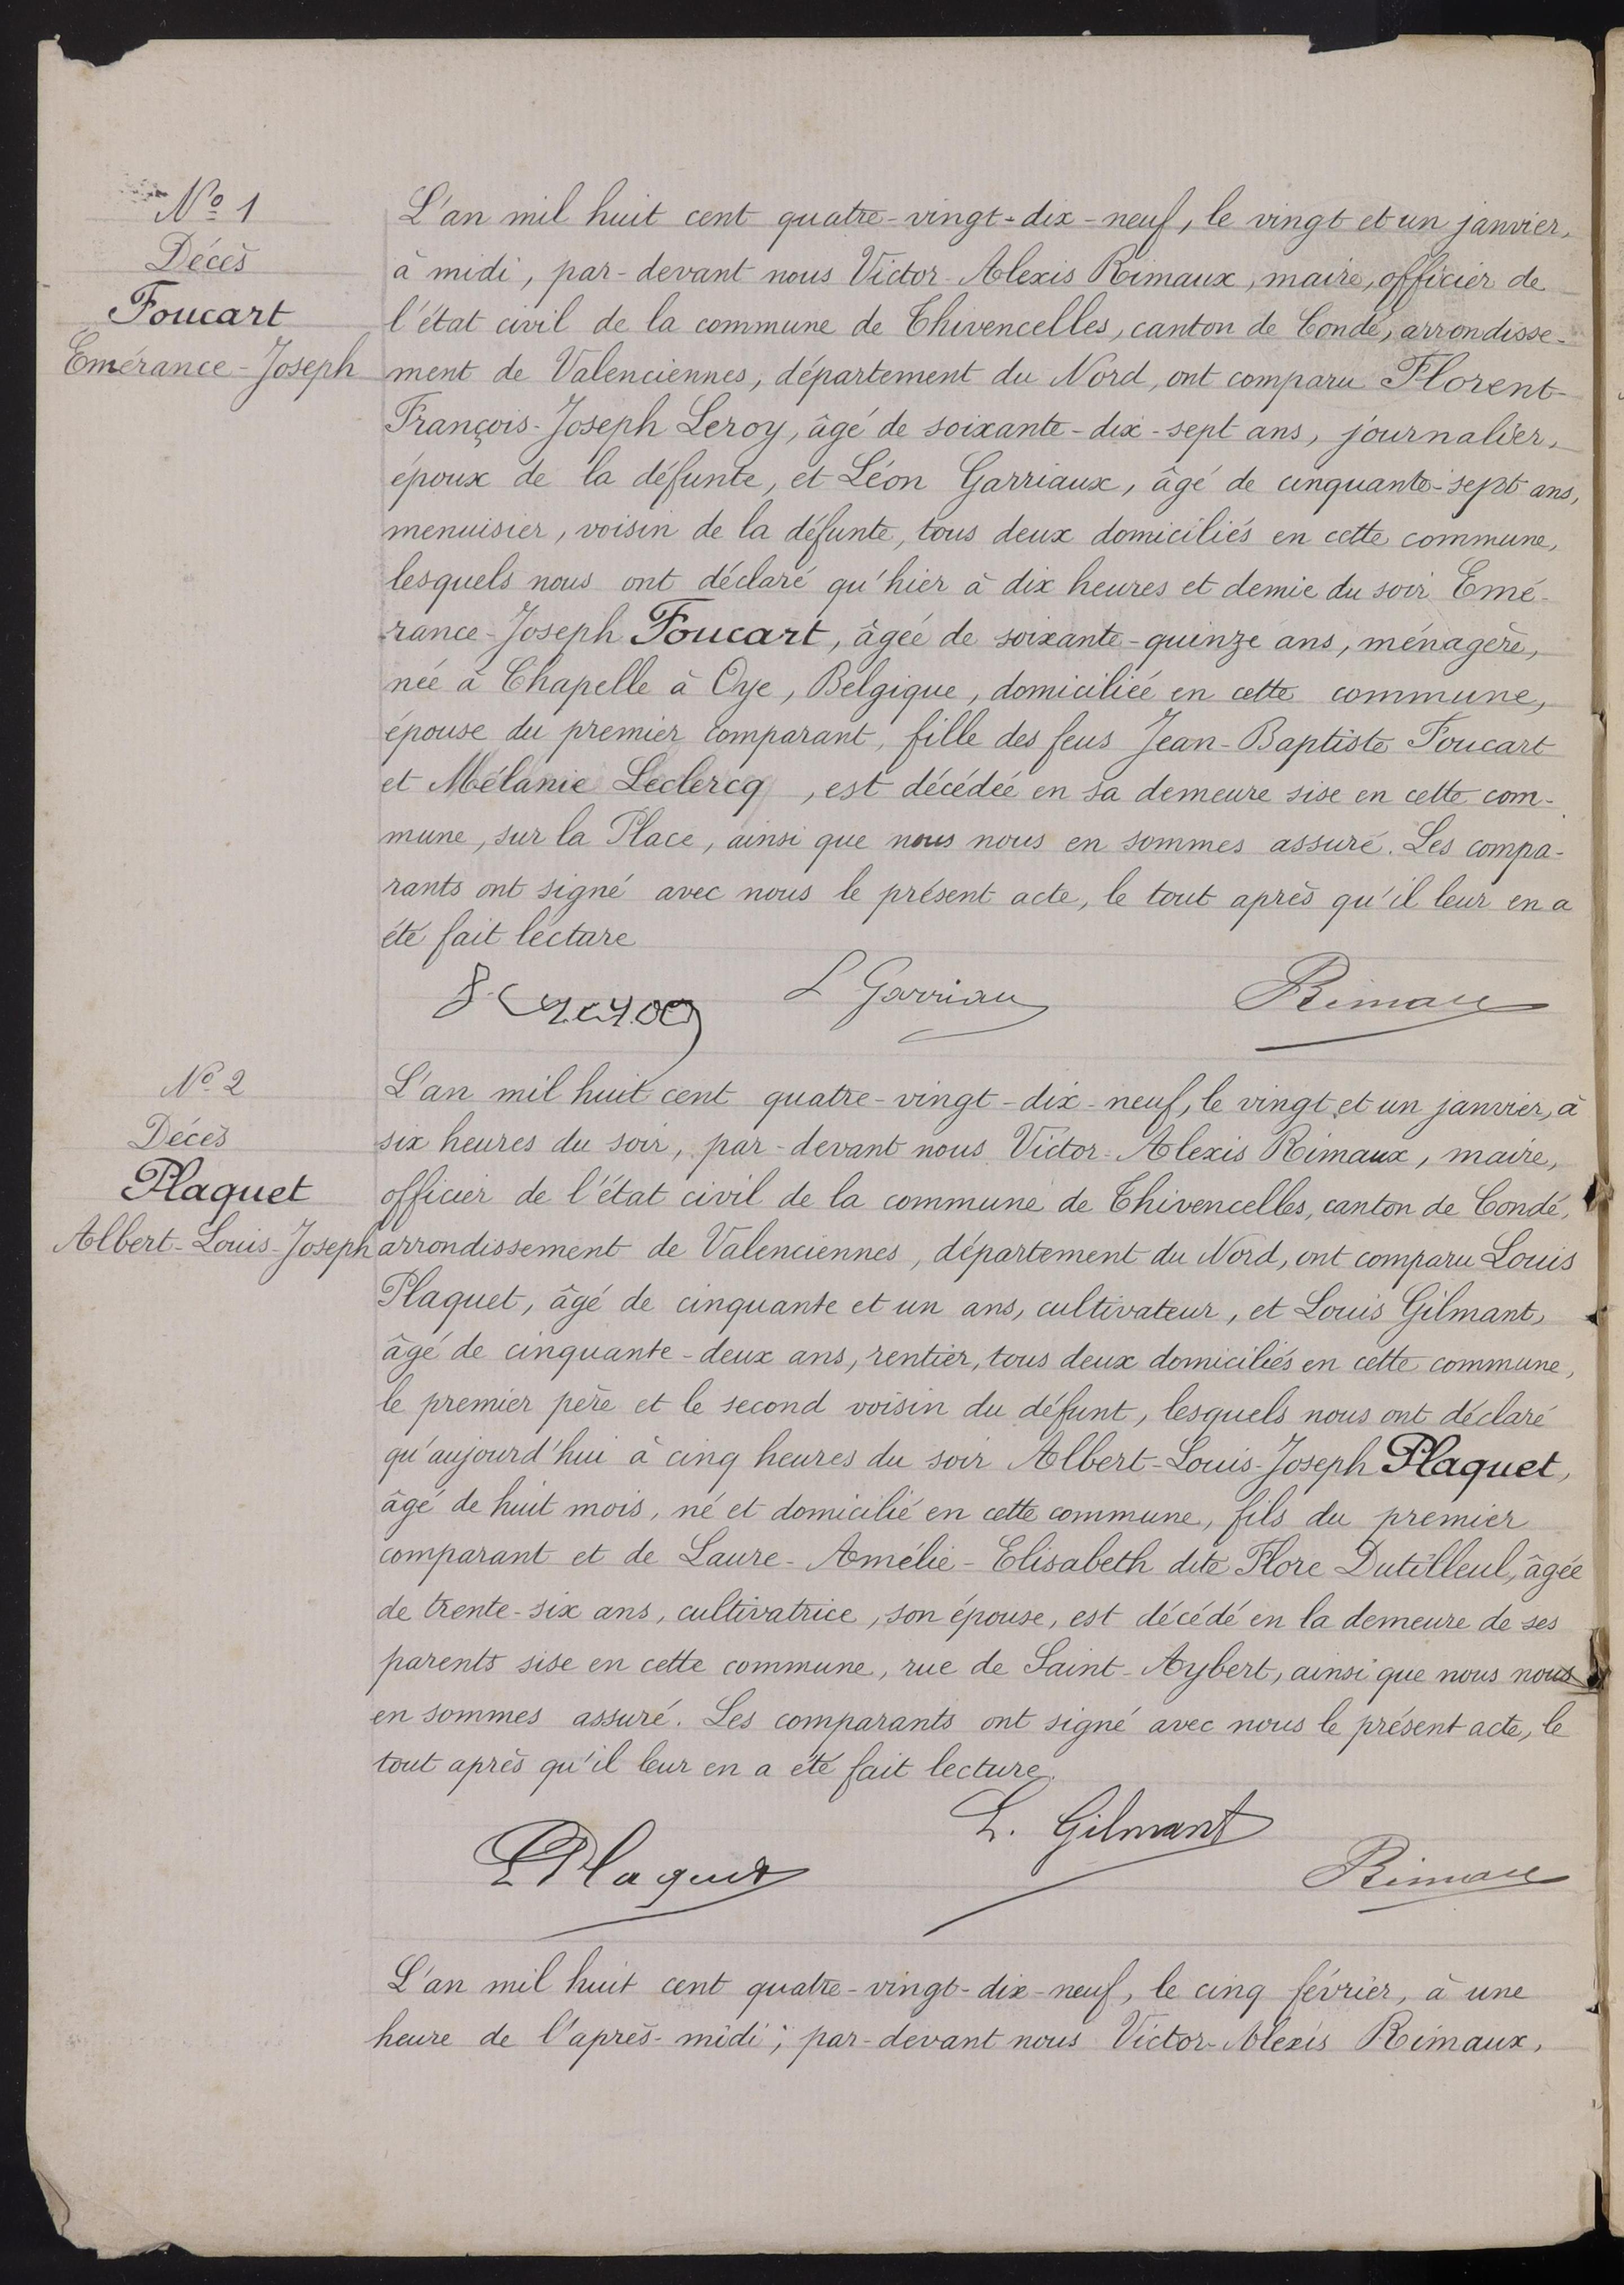 Nº 1
Décès
Foucart
Emérance-Joseph
L'an mil huit cent quatre-vingt-dix-neuf, le vingt et un janvier,
à midi, par-devant nous Victor-Alexis Rimaux, maire, officier de
l'état civil de la commune de Thivencelles, canton de Condé, arrondisse-
ment de Valenciennes, département du Nord, ont comparu Florent-
François-Joseph Leroy, âgé de soixante-dix-sept ans, journalier,
époux de la défunte, et Léon Garriaux, âgé de cinquante-sept ans,
menuisier, voisin de la défunte, tous deux domiciliés en cette commune,
lesquels nous ont déclaré qu'hier à dix heures et demie du soir Emé-
rance-Joseph Foucart, âgée de soixante-quinze ans, ménagère,
née à Chapelle à Oye, Belgique, domiciliée en cette commune,
épouse du premier comparant, fille des feus Jean-Baptiste Foucart
et Mélanie Leclercq, est décédée en sa demeure sise en cette com-
mune, sur la Place, ainsi que nous nous en sommes assuré. Les compa-
rants ont signé avec nous le présent acte, le tout après qu'il leur en a
été fait lecture
L Garriau
Rimau
Nº 2
Décès
Plaquet
Albert-Louis-Joseph
L'an mil huit cent quatre-vingt-dix-neuf, le vingt et un janvier, à
six heures du soir, par-devant nous Victor-Alexis Rimaux, maire,
officier de l'état civil de la commune de Thivencelles, canton de Condé,
arrondissement de Valenciennes, département du Nord, ont comparu Louis
Plaquet, âgé de cinquante et un ans, cultivateur, et Louis Gilmant,
âgé de cinquante-deux ans, rentier, tous deux domiciliés en cette commune,
le premier père et le second voisin du défunt, lesquels nous ont déclaré
qu'aujourd'hui à cinq heures du soir Albert-Louis-Joseph Plaquet,
âgé de huit mois, né et domicilié en cette commune, fils du premier
comparant et de Laure-Amélie-Elisabeth dite Flore Dutilleul, âgée
de trente-six ans, cultivatrice, son épouse, est décédé en la demeure de ses
parents sise en cette commune, rue de Saint-Aybert, ainsi que nous nous
en sommes assuré. Les comparants ont signé avec nous le présent acte, le
tout après qu'il leur en a été fait lecture.
L. Gilmant
L Plaquet
Rimau
L'an mil huit cent quatre-vingt-dix-neuf, le cinq février, à une
heure de l'après-midi, par-devant nous Victor-Alexis Rimaux,